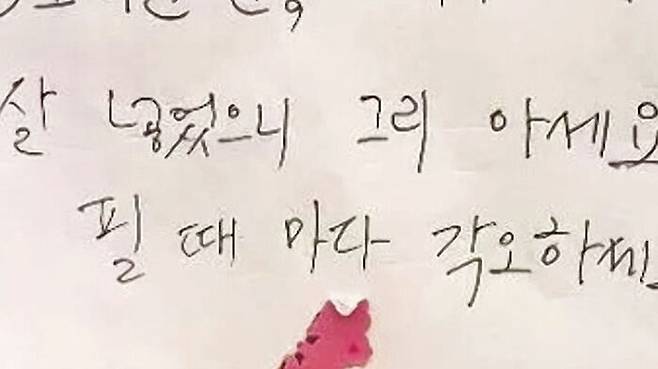 살 넣었으니 그리 아세요
필 때 마다 각오하세요